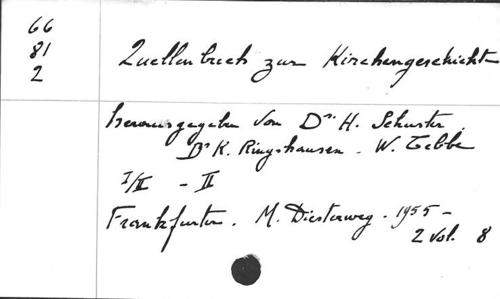 66
81
2
Quellenbuch zur Kirchengeschichte
herausgegeben von Dr. H. Schuster
Dr K. Ringshausen - W. Tebbe
I/II - II
Frankfurt. M. Diesterweg - 1955 -
2 vol. 8